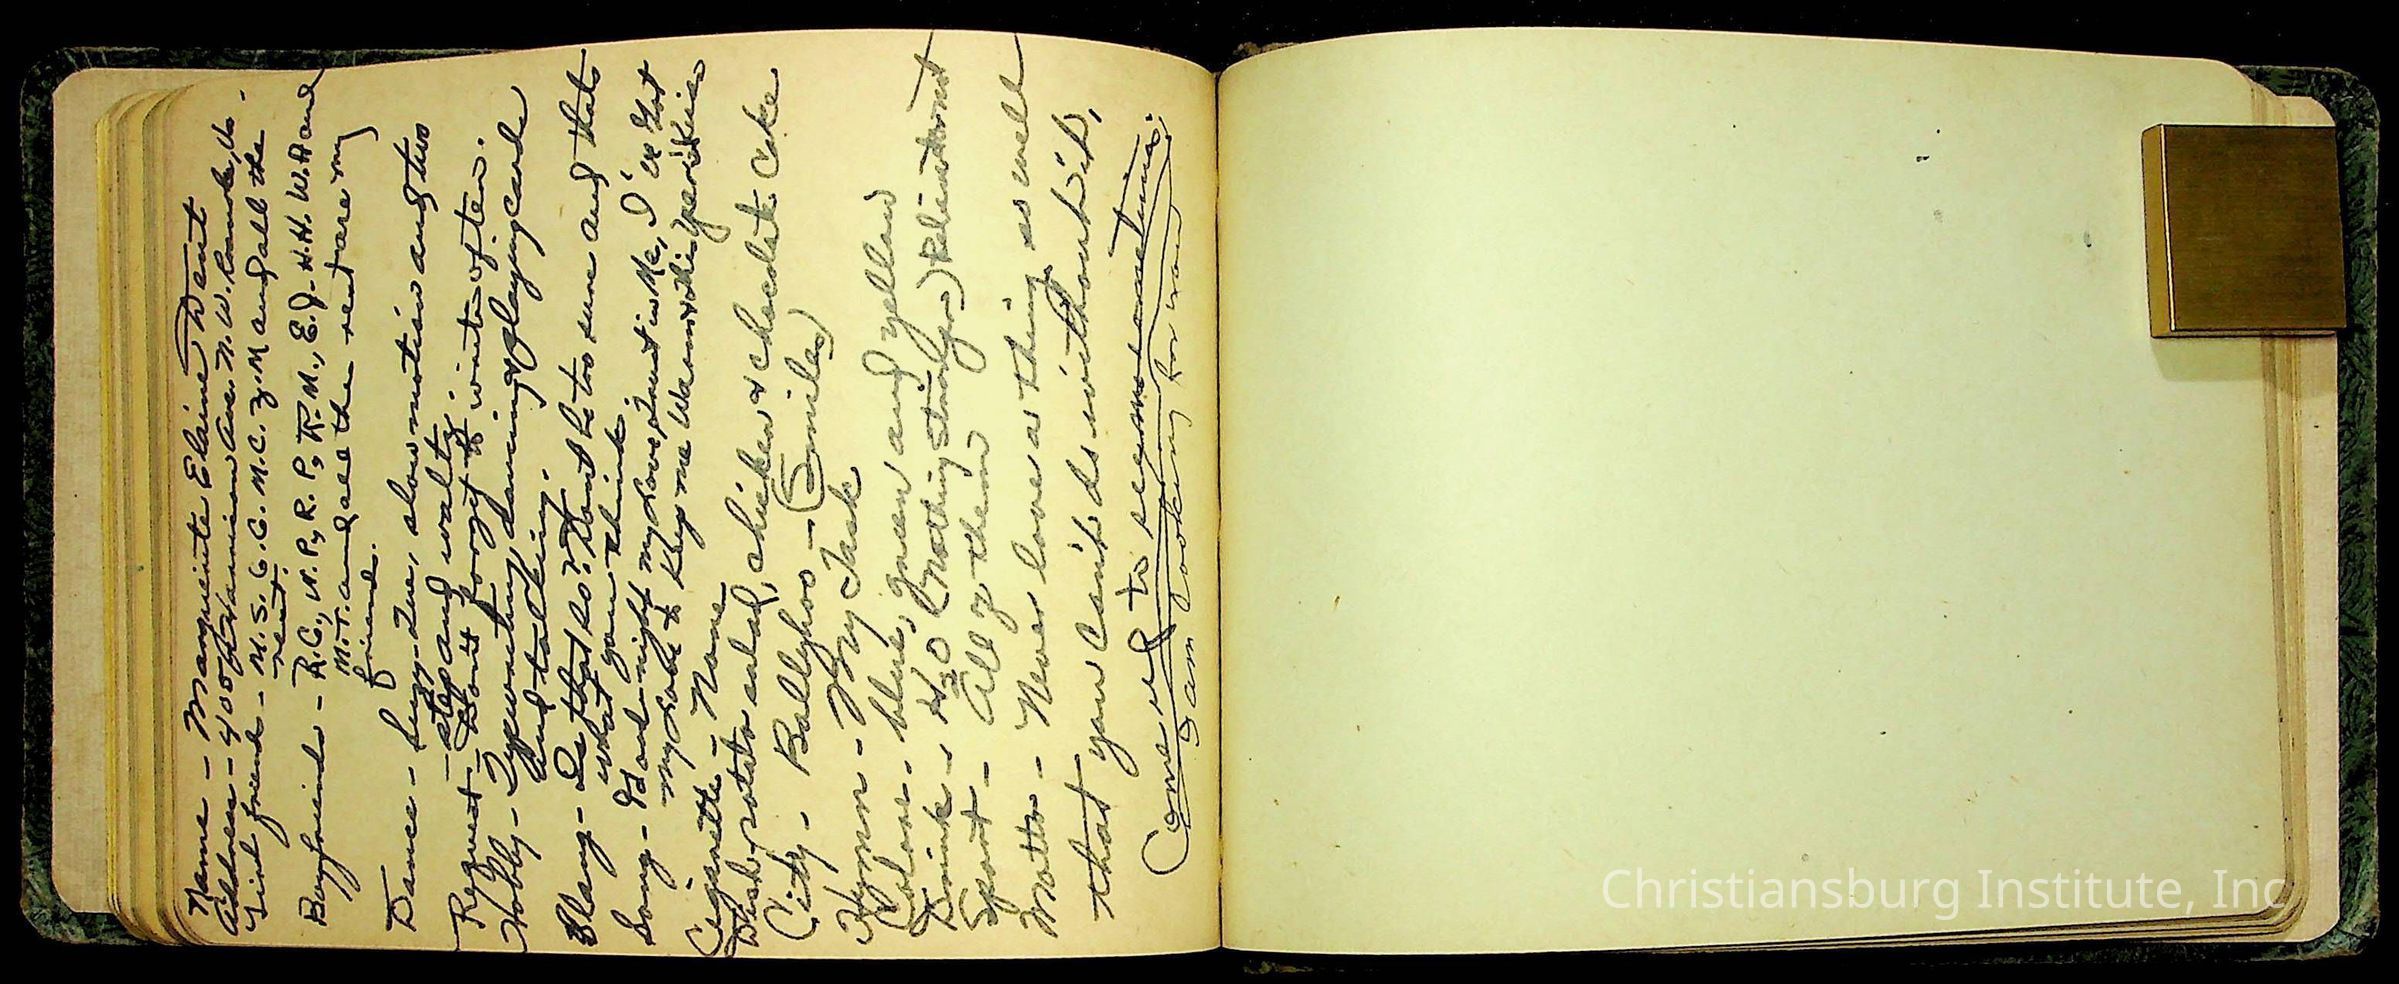 Name - Marguerite Elaine Dent
Address - 400 Harrison Ave. N.W. Roanoke, Va.
Girl friend - M.S. C.C. M.C. Z.M and all the
rest.
Boyfriend - R.C., N.P., R.P., R.M., E.J. H.H. W.A and
M.T. and all the rest are my
friends.
Dance - Suzy-Que, slow motion and two
step and waltz.
Request - Don't forget to write often.
Hobby - Typewriting, dancing, playing cards
and talking.
Slang - Is that so? Don't be too sure and that's
what you think.
Song - Good-night my Love, Trust in Me, I've Got
my Love to Keep me Warm
Cigarette - None
Dish - potato salad, chicken & chocolate cake
City - Ballyhoo - (Smiles)
Hymn - My Task
Colors - blue, green and yellow
Drink - H2O (nothing stronger)
Sport - All of them
Motto - Never love a thing so well
that you can't do without it,
Come up to see me sometime.
I am looking for you
Christiansburg Institute, Inc